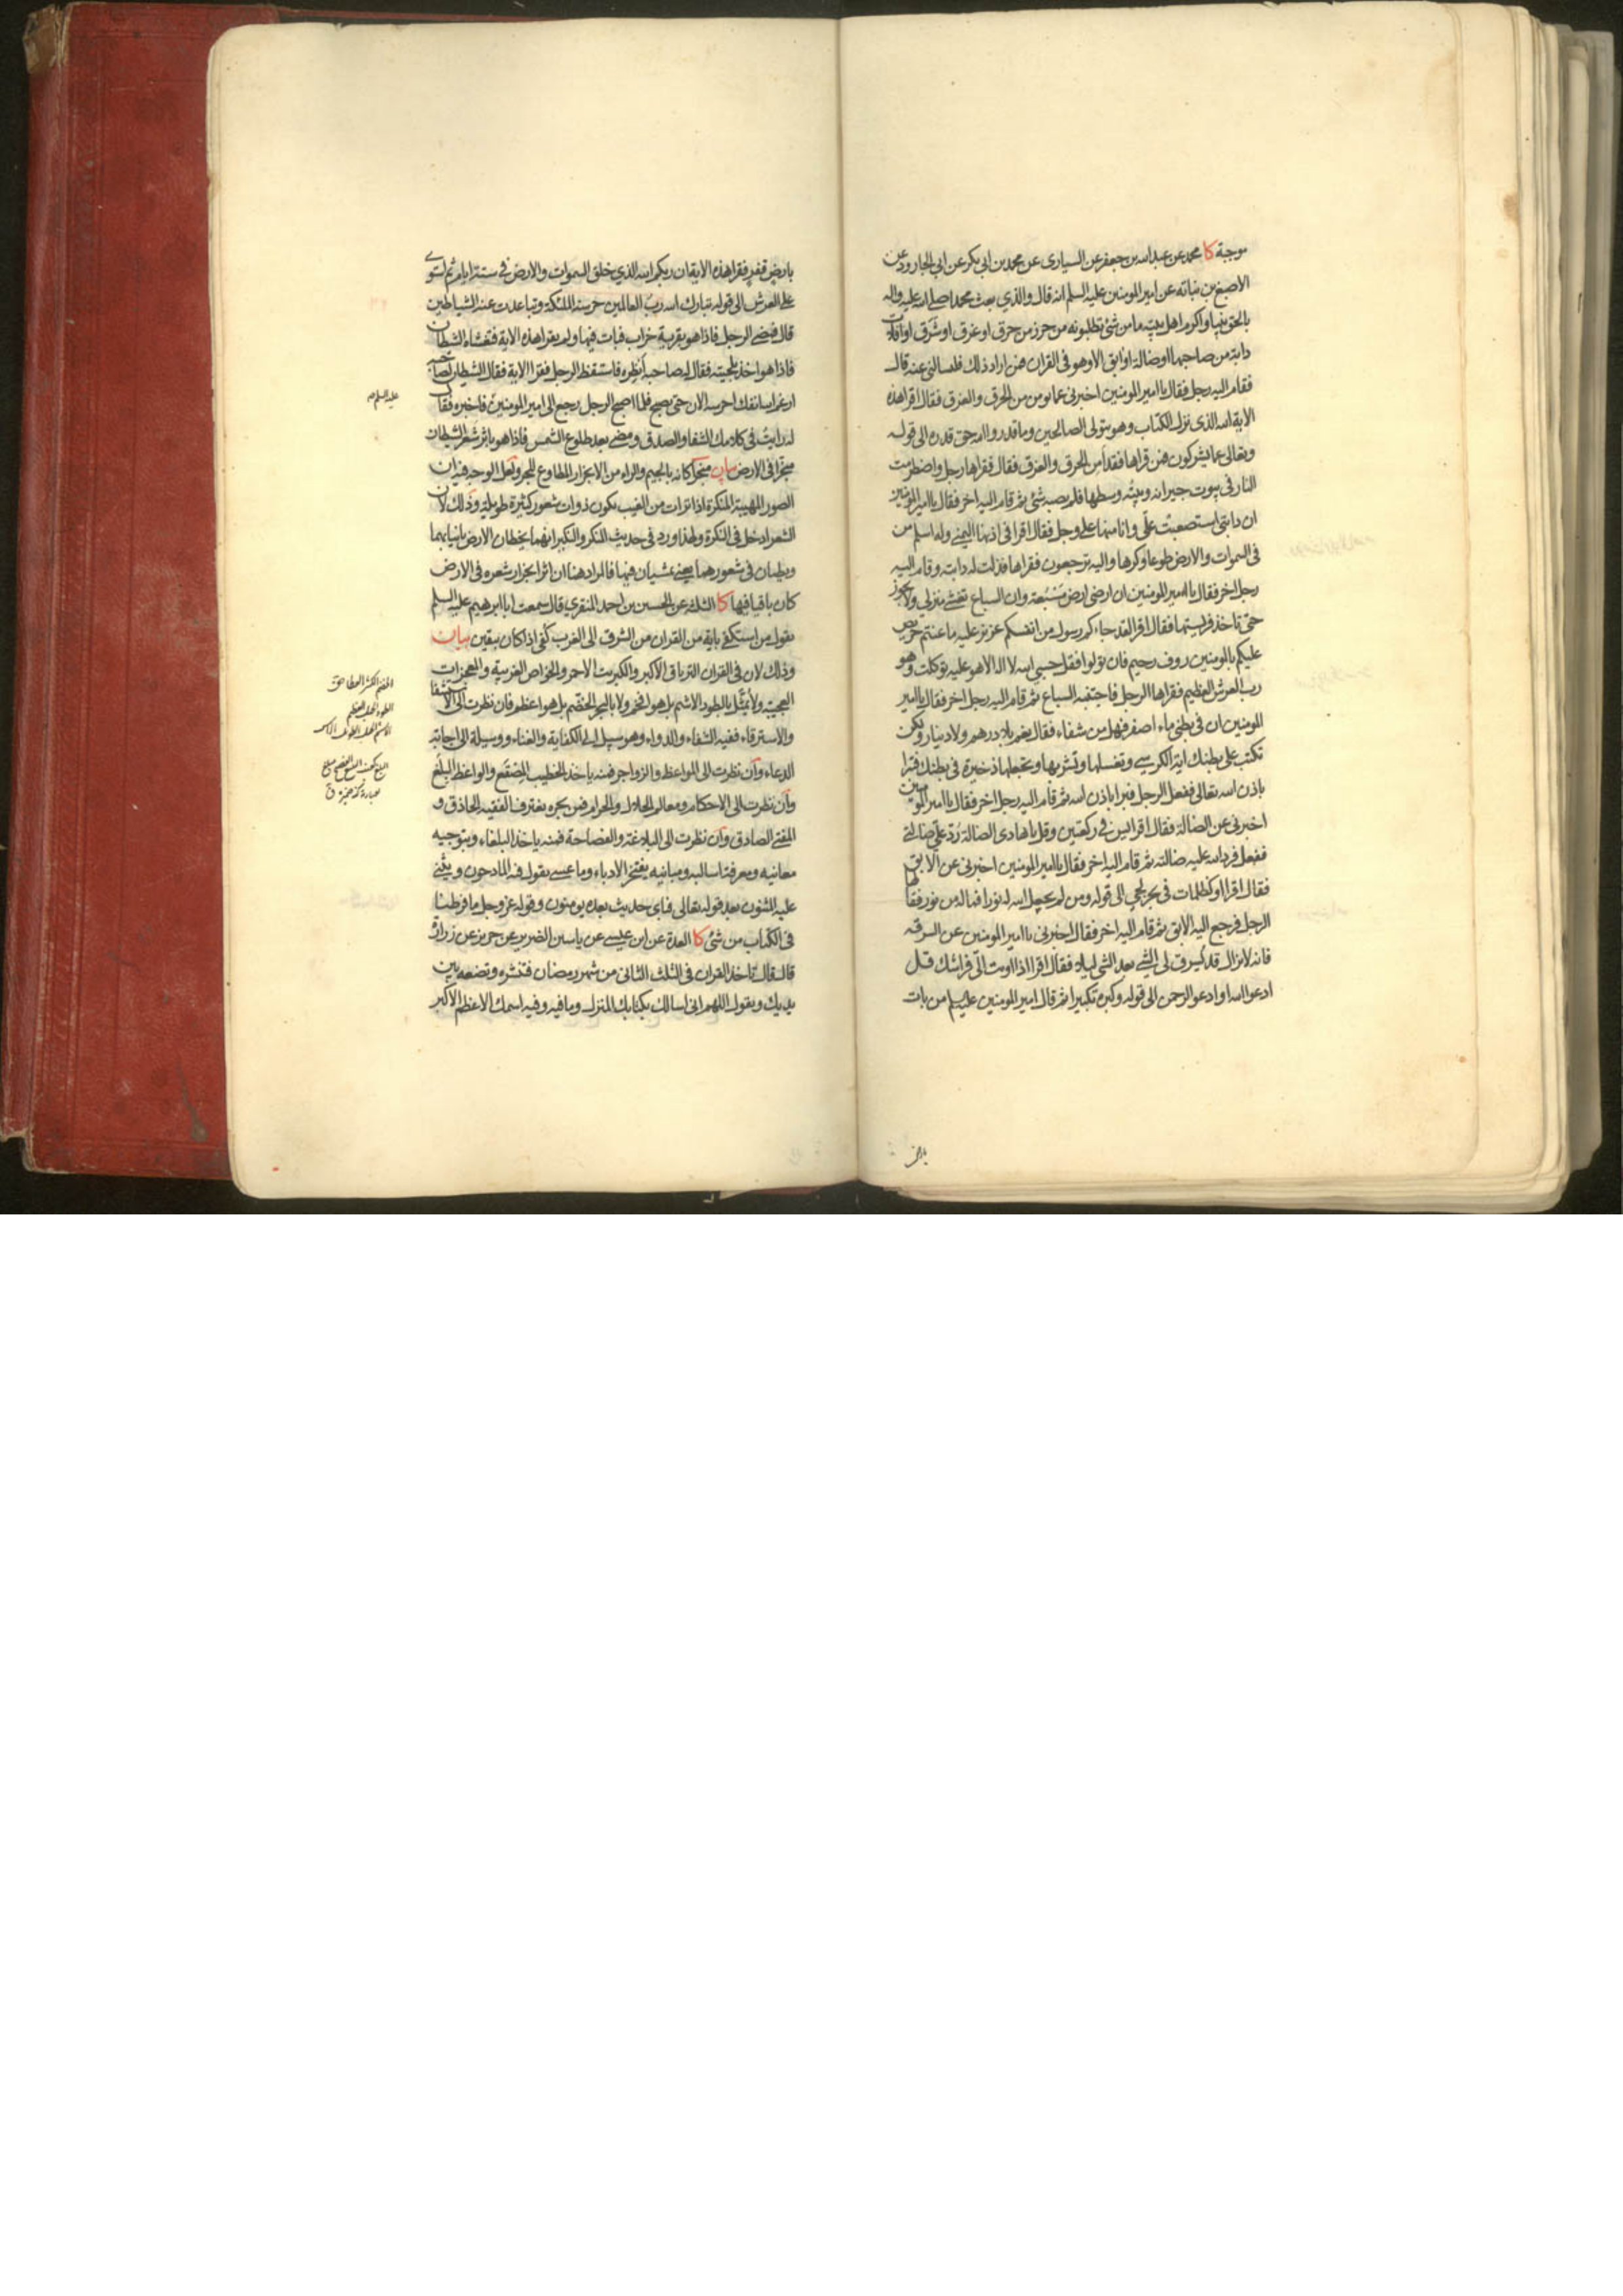 موجبة كا محمد عن عبد الله بن جعفر عن السيارى عن محمد بن ابى بكر عن ابى الجارود عن
الاصبغ بن نباته عن امير المومنين عليه السلم انه قال والذي بعث محمدا صلى الله عليه واله
بالحق نبيا واكرم اهل بيته ما من شئ تطلبونه من حرز من حرق او غرق او شرق او افلات
دابة من صاحبها او ضالة او ابق الا وهو فى القران فمن اراد ذلك فليسالنى عنه قال
فقام اليه رجل فقال يا امير المومنين اخبرنى عما يومن من الحرق والغرق فقال اقرا هذه
الاية الله الذى نزل الكتاب وهو يتولى الصالحين وما قدروا الله حق قدره الى قوله
وتعالى عما يشركون فمن قراها فقد امن الحرق والغرق فقال فقراها رجل واضطرمت
النار فى بيوت جيرانه وبيته وسطها فلم يصبه شئ ثم قام اليه اخر فقال يا امير المومنين
ان دابتى استصعبت على وانا منها على وجل فقال اقرا فى اذنها اليمنى وله اسلم من
فى السموات والارض طوعا وكرها واليه ترجعون فقراها فذلت له دابته وقام اليه
رجل اخر فقال يا امير المومنين ان ارضى ارض مسبعة وان السباع تغشى منزلى ولا تجوز
حتى تاخذ فريستها فقال اقرا لقد جاءكم رسول من انفسكم عزيز عليه ما عنتم حريص
عليكم بالمومنين روف رحيم فان تولوا فقل حسبى الله لا اله الا هو عليه توكلت وهو
رب العرش العظيم فقراها الرجل فاجتنبته السباع ثم قام اليه رجل اخر فقال يا امير
المومنين ان فى بطنى ماء اصفر فهل من شفاء فقال نعم بلا درهم ولا دينار ولكن
تكتب على بطنك اية الكرسى وتغسلها وتشربها وتجعلها ذخيرة فى بطنك فتبرا
باذن الله تعالى ففعل الرجل فبرا باذن الله ثم قام اليه رجل اخر فقال يا امير المومنين
اخبرنى عن الضالة فقال اقرا يس فى ركعتين وقل يا هادى الضالة رد على ضالتى
ففعل فرد الله عليه ضالته ثم قام اليه اخر فقال يا امير المومنين اخبرنى عن الابق
فقال اقرا او كظلمات فى بحر لجى الى قوله ومن لم يجعل الله له نورا فما له من نور فقالها
الرجل فرجع اليه الابق ثم قام اليه اخر فقال اخبرنى يا امير المومنين عن السرقه
فانه لا نزال قد يسرق لى الشئ بعد الشئ ليلا فقال اقرا اذا اويت الى فراشك قل
ادعوا الله او ادعو الرحمن الى قوله وكبره تكبيرا ثم قال امير المومنين عليه السلم من بات
بارض
بارض قفر فقرا هذه الاية ان ربكم الله الذي خلق السموات والارض فى ستة ايام ثم استوى
على العرش الى قوله تبارك الله رب العالمين حرسته الملئكة وتباعدت عنه الشياطين
قال فمضى الرجل فاذا هو بقرية خراب فبات فيها ولم يقرا هذه الاية فتغشاه الشيطان
فاذا هو اخذ بلحيته فقال له صاحبه انظره فاستيقظ الرجل فقرا الاية فقال الشيطان لصاحبه
ارغم الله انفك احرسه الان حتى يصبح فلما اصبح الرجل رجع الى امير المومنين فاخبره فقال
له رايت فى كلامك الشفا والصدق ومضى بعد طلوع الشمس فاذا هو باثر شعر الشيطان
منجرا فى الارض بيان منجرا كانه بالجيم والراء من الانجرار المطاوع للجر ولعل الوجه فيه ان
الصور المهيبة المنكرة اذا تراءت من الغيب تكون ذوات شعور كثيرة طويلة وذلك لان
الشعر ادخل فى النكرة ولهذا ورد فى حديث المنكر والنكير انهما يخطان الارض بانيابهما
ويطئان فى شعورهما يعنى يمشيان فيها فالمراد هنا ان اثر انجرار شعره فى الارض
كان باقيا فيها كا الثلثة عن الحسين بن احمد المنقري قال سمعت ابا ابرهيم عليه السلم
يقول من استكفى باية من القران من الشرق الى الغرب كفى اذا كان بيقين بيان
وذلك لان فى القران الترياق الاكبر والكبريت الاحمر والخواص الغريبة والمعجزات
العجيبة ولا يمثل بالطود الاشم بل هو افخم ولا بالبحر الخضم بل هو اعظم فان نظرت الى الاستشفا
والاسترقاء ففيه الشفاء والدواء وهو سبيل الى الكفاية والغناء ووسيلة الى اجابة
الدعاء وان نظرت الى المواعظ والزواجر فمنه ياخذ الخطيب المصقع والواعظ البلغ
وان نظرت الى الاحكام ومعالم الحلال والحرام فمن بحره يغترف الفقيه الحاذق و
المفتى الصادق وان نظرت الى البلاغة والفصاحة فمنه ياخذ البلغاء وبتوجيه
معانيه ومعرفة اساليبه ومبانيه يفتخر الادباء وما عسى يقول فيه المادحون ويثنى
عليه المثنون بعد قوله تعالى فباى حديث بعده يومنون وقوله عز وجل ما فرطنا
فى الكتاب من شئ كا العدة عن ابن عيسى عن ياسين الضرير عن حريز عن زرارة
قال قال تاخذ القران فى الثلث الثانى من شهر رمضان فتنشره وتضعه بين
يديك وتقول اللهم انى اسالك بكتابك المنزل وما فيه وفيه اسمك الاعظم الاكبر
عليه السلم
الطود الجبل العظيم